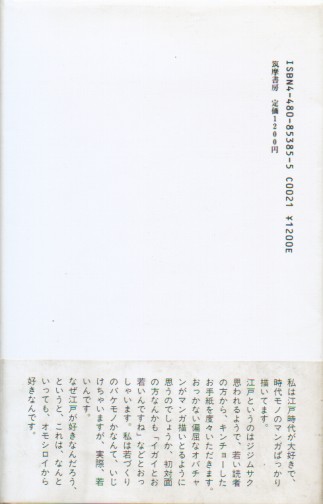 ISBN4-480-85385-5 C0021 ¥1200E
筑摩書房 定価1200円
私は江戸時代が大好きで、
時代モノのマンガばっかり
描いてます。
江戸というのはジジムサク
思われるようで、若い読者
の方から、キンチョーした
お手紙を度々いただきます。
おっかない偏屈なオバチャ
ンがマンガ描いとるように
思うのでしょうか。初対面
の方なんか、イガイとお
若いんですね、などとおっ
しゃいます。私は若づくり
のバケモノかなんて、いじ
けちゃいますが、実際、若
いんです。
なぜ江戸が好きなんだろう、
というと、これは、なんと
いっても、オモシロイから
好きなんです。